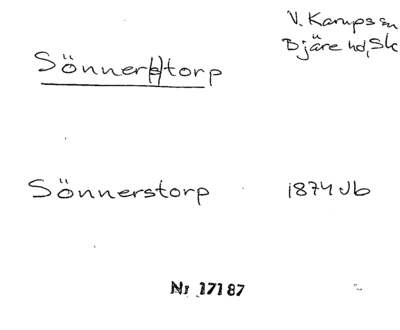 V. Karups sn
Bjäre hd, Sk
Sönner(s)torp
Sönnerstorp 1874 Jb
Nr 17187